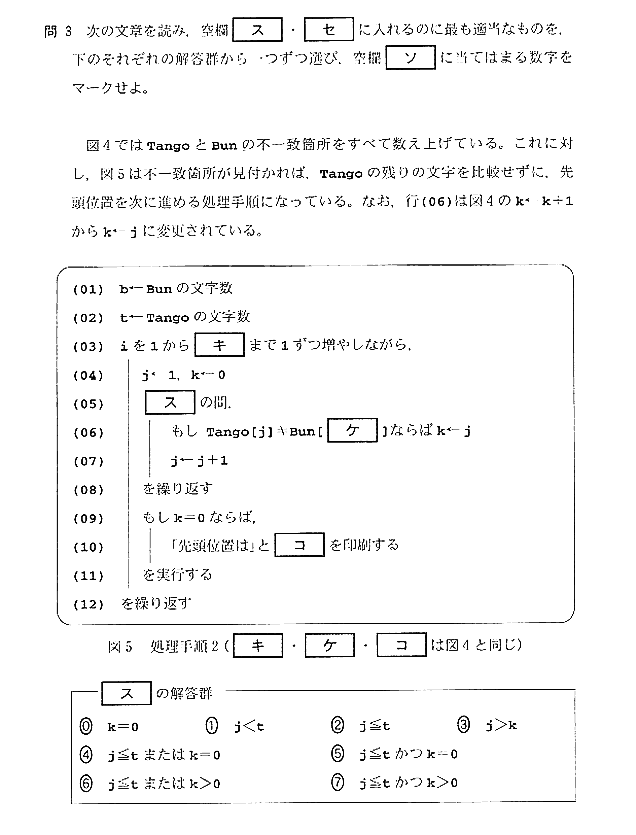 問 3 次の文章を読み，空欄 ス ・ セ に入れるのに最も適当なものを，
下のそれぞれの解答群から一つずつ選び，空欄 ソ に当てはまる数字を
マークせよ。
図4では Tango と Bun の不一致箇所をすべて数え上げている。これに対
し，図5は不一致箇所が見付かれば，Tango の残りの文字を比較せずに，先
頭位置を次に進める処理手順になっている。なお，行(06)は図4の k←k+1
から k←j に変更されている。
(01) b←Bun の文字数
(02) t←Tango の文字数
(03) i を 1 から キ まで 1 ずつ増やしながら，
(04) j←1，k←0
(05) ス の間，
(06) もし Tango[j]≠Bun[ ケ ]ならば k←j
(07) j←j+1
(08) を繰り返す
(09) もし k=0 ならば，
(10) 「先頭位置は」と コ を印刷する
(11) を実行する
(12) を繰り返す
図5 処理手順2( キ ・ ケ ・ コ は図4と同じ)
ス の解答群
⓪ k=0 ① j<t ② j≦t ③ j>k
④ j≦t または k=0 ⑤ j≦t かつ k=0
⑥ j≦t または k>0 ⑦ j≦t かつ k>0